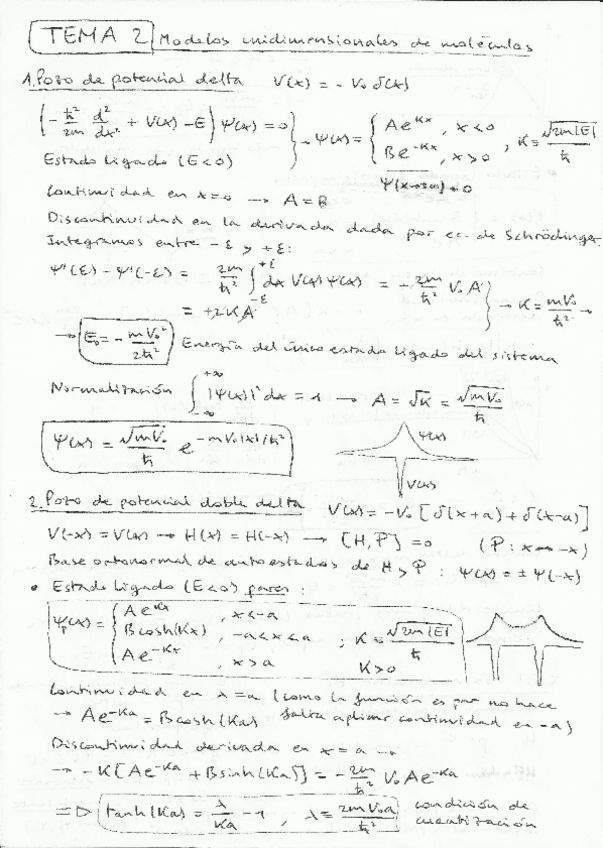 TEMA 2 Modelos unidimensionales de moléculas
1. Pozo de potencial delta V(x) = - V₀ δ(x)
(-ħ²/2m d²/dx² + V(x) - E) Ψ(x) = 0 } → Ψ(x) = { Ae^{Kx}, x<0 ; Be^{-Kx}, x>0 , K = √(2m|E|)/ħ
Estado ligado (E<0) Ψ(x→±∞) = 0
Continuidad en x=0 → A = B
Discontinuidad en la derivada dada por ec. de Schrödinger.
Integramos entre -ε y +ε:
Ψ'(ε) - Ψ'(-ε) = 2m/ħ² ∫_{-ε}^{+ε} dx V(x) Ψ(x) = - 2m/ħ² V₀ A } → K = mV₀/ħ² →
= +2KA
→ E₀ = - mV₀²/2ħ² Energía del único estado ligado del sistema
Normalización ∫_{-∞}^{+∞} |Ψ(x)|² dx = 1 → A = √K = √(mV₀)/ħ
Ψ(x) = √(mV₀)/ħ e^{-mV₀|x|/ħ²} Ψ(x)
V(x)
2. Pozo de potencial doble delta V(x) = -V₀ [δ(x+a) + δ(x-a)]
V(-x) = V(x) → H(x) = H(-x) → [H, P] = 0 (P: x → -x)
Base ortonormal de autoestados de H y P : Ψ(x) = ± Ψ(-x)
• Estado ligado (E<0) pares :
Ψp(x) = { Ae^{Kx} , x<-a
Bcosh(Kx) , -a<x<a ; K = √(2m|E|)/ħ
Ae^{-Kx} , x>a K>0
Continuidad en x=a (como la función es par no hace
→ Ae^{-Ka} = Bcosh(Ka) falta aplicar continuidad en -a)
Discontinuidad derivada en x=a →
→ -K[Ae^{-Ka} + Bsinh(Ka)] = - 2m/ħ² V₀ Ae^{-Ka}
=> tanh(Ka) = λ/Ka - 1 , λ = 2mV₀a/ħ² condición de
cuantización